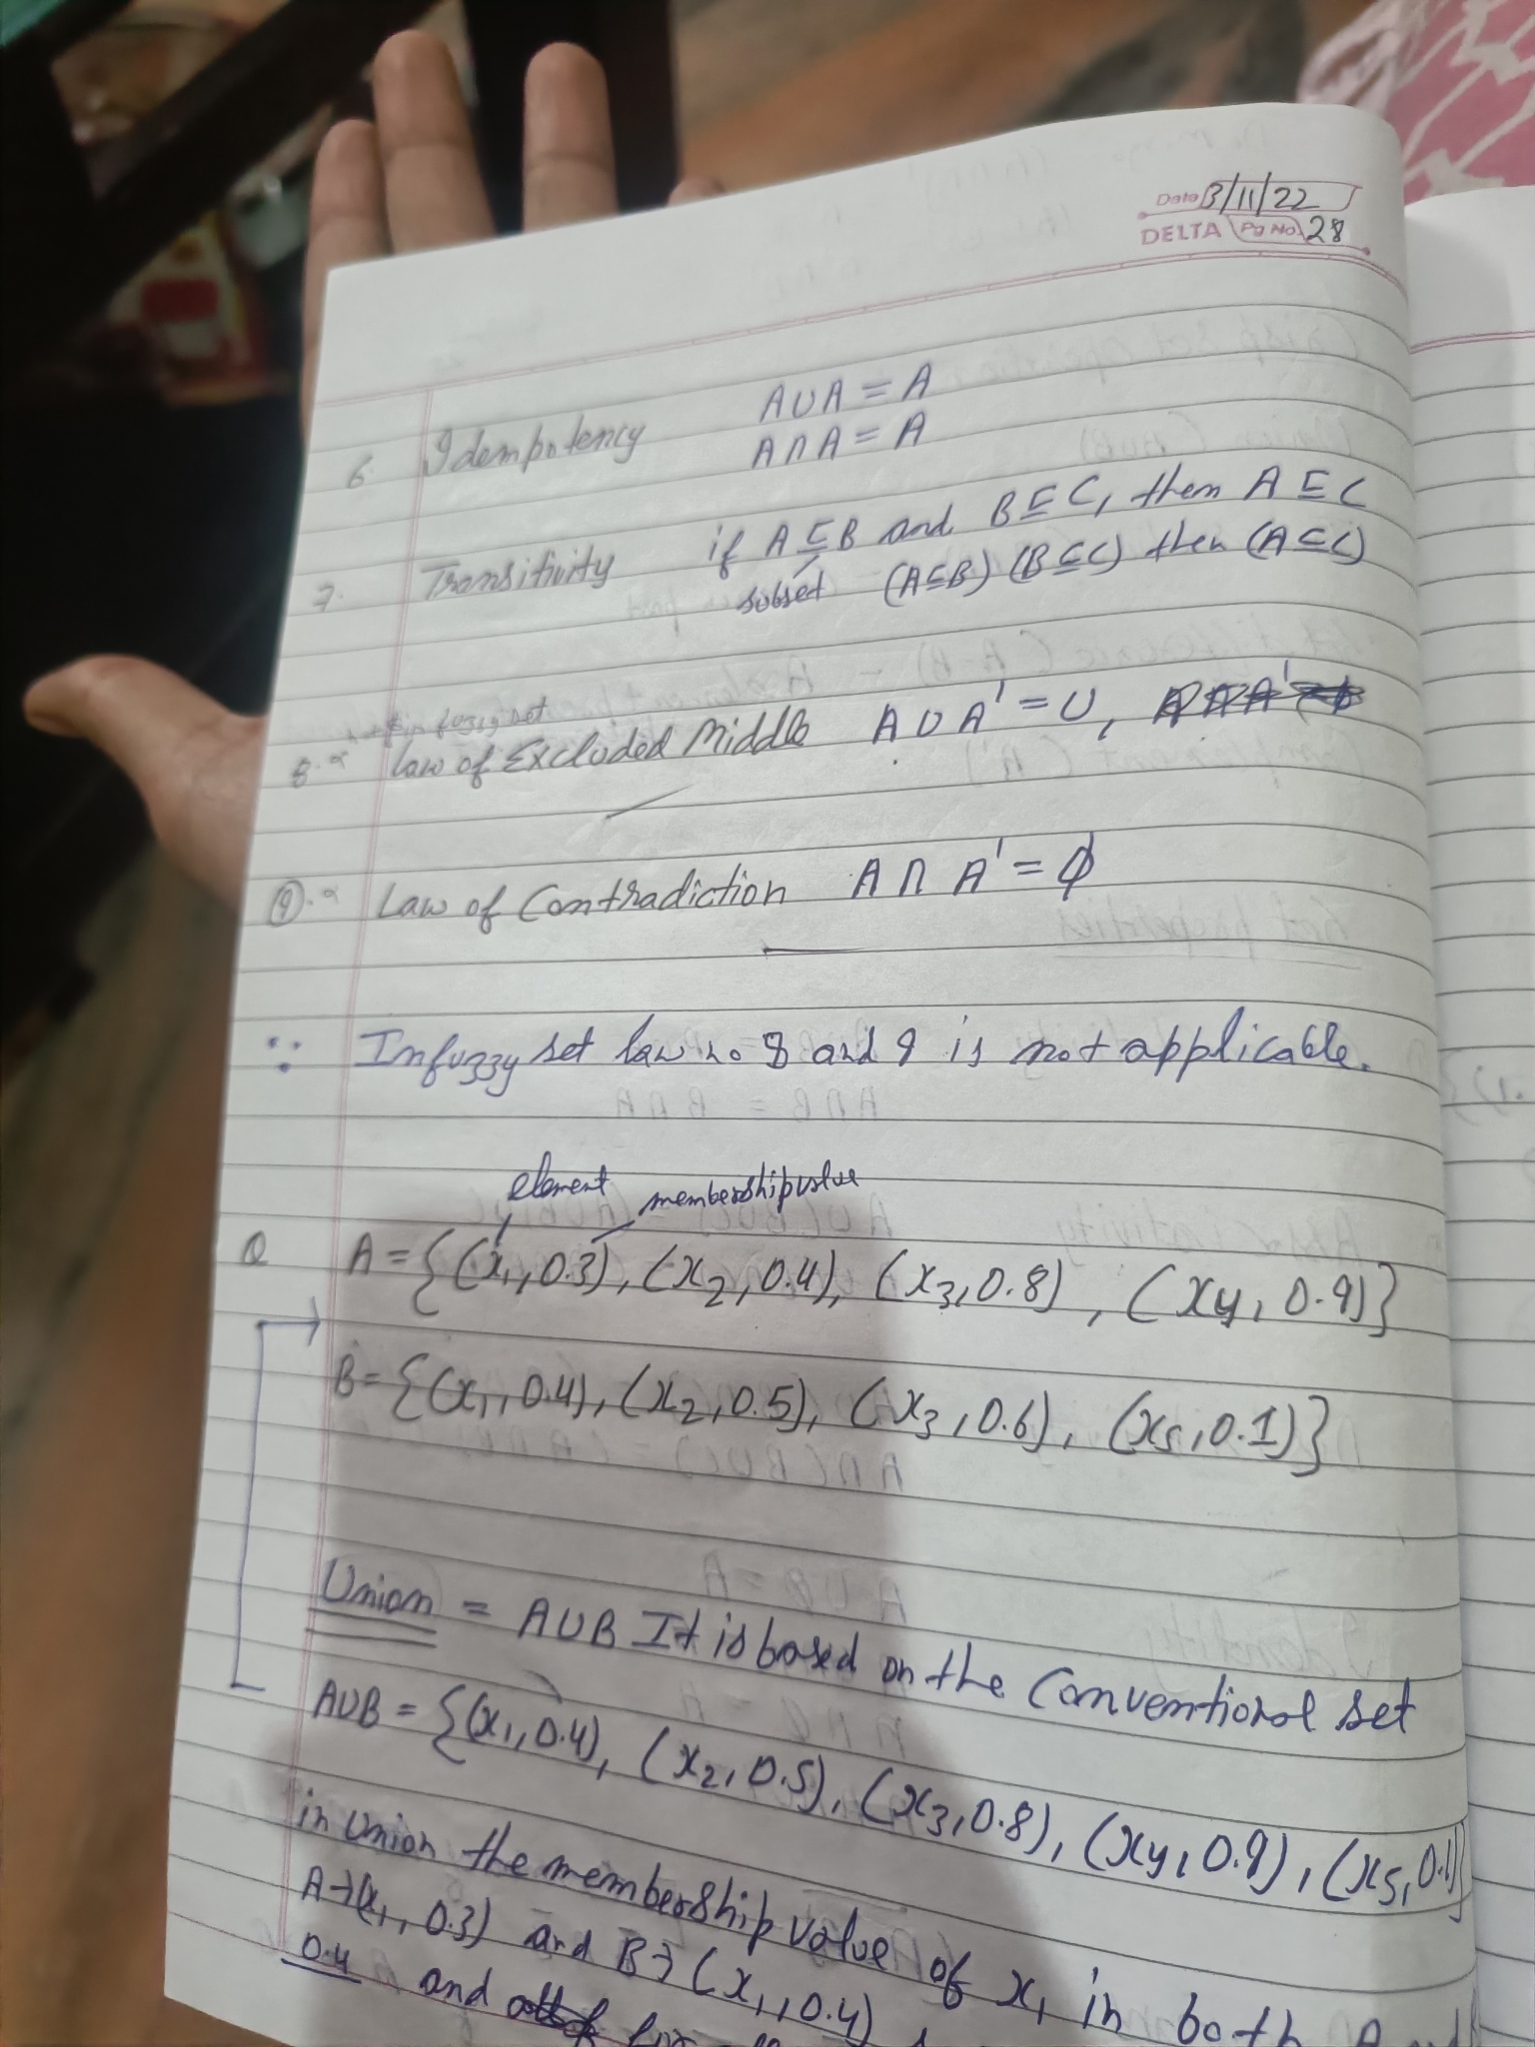 Date 3/11/22
DELTA Pg No. 28
6. Idempotency A∪A = A
A∩A = A
7. Transitivity if A⊆B and B⊆C, then A⊆C
subset (A⊆B) (B⊆C) then (A⊆C)
fuzzy set
8. Law of Excluded Middle A∪A' = U,
9. Law of Contradiction A∩A' = ϕ
In fuzzy set law no 8 and 9 is not applicable.
element membership value
Q A = {(x₁, 0.3), (x₂, 0.4), (x₃, 0.8), (x₄, 0.9)}
B = {(x₁, 0.4), (x₂, 0.5), (x₃, 0.6), (x₅, 0.1)}
Union = A∪B It is based on the Conventional set
A∪B = {(x₁, 0.4), (x₂, 0.5), (x₃, 0.8), (x₄, 0.9), (x₅, 0.1)}
in Union the membership value of x₁ in both A
A→(x₁, 0.3) and B→(x₁, 0.4)
0.4 and for